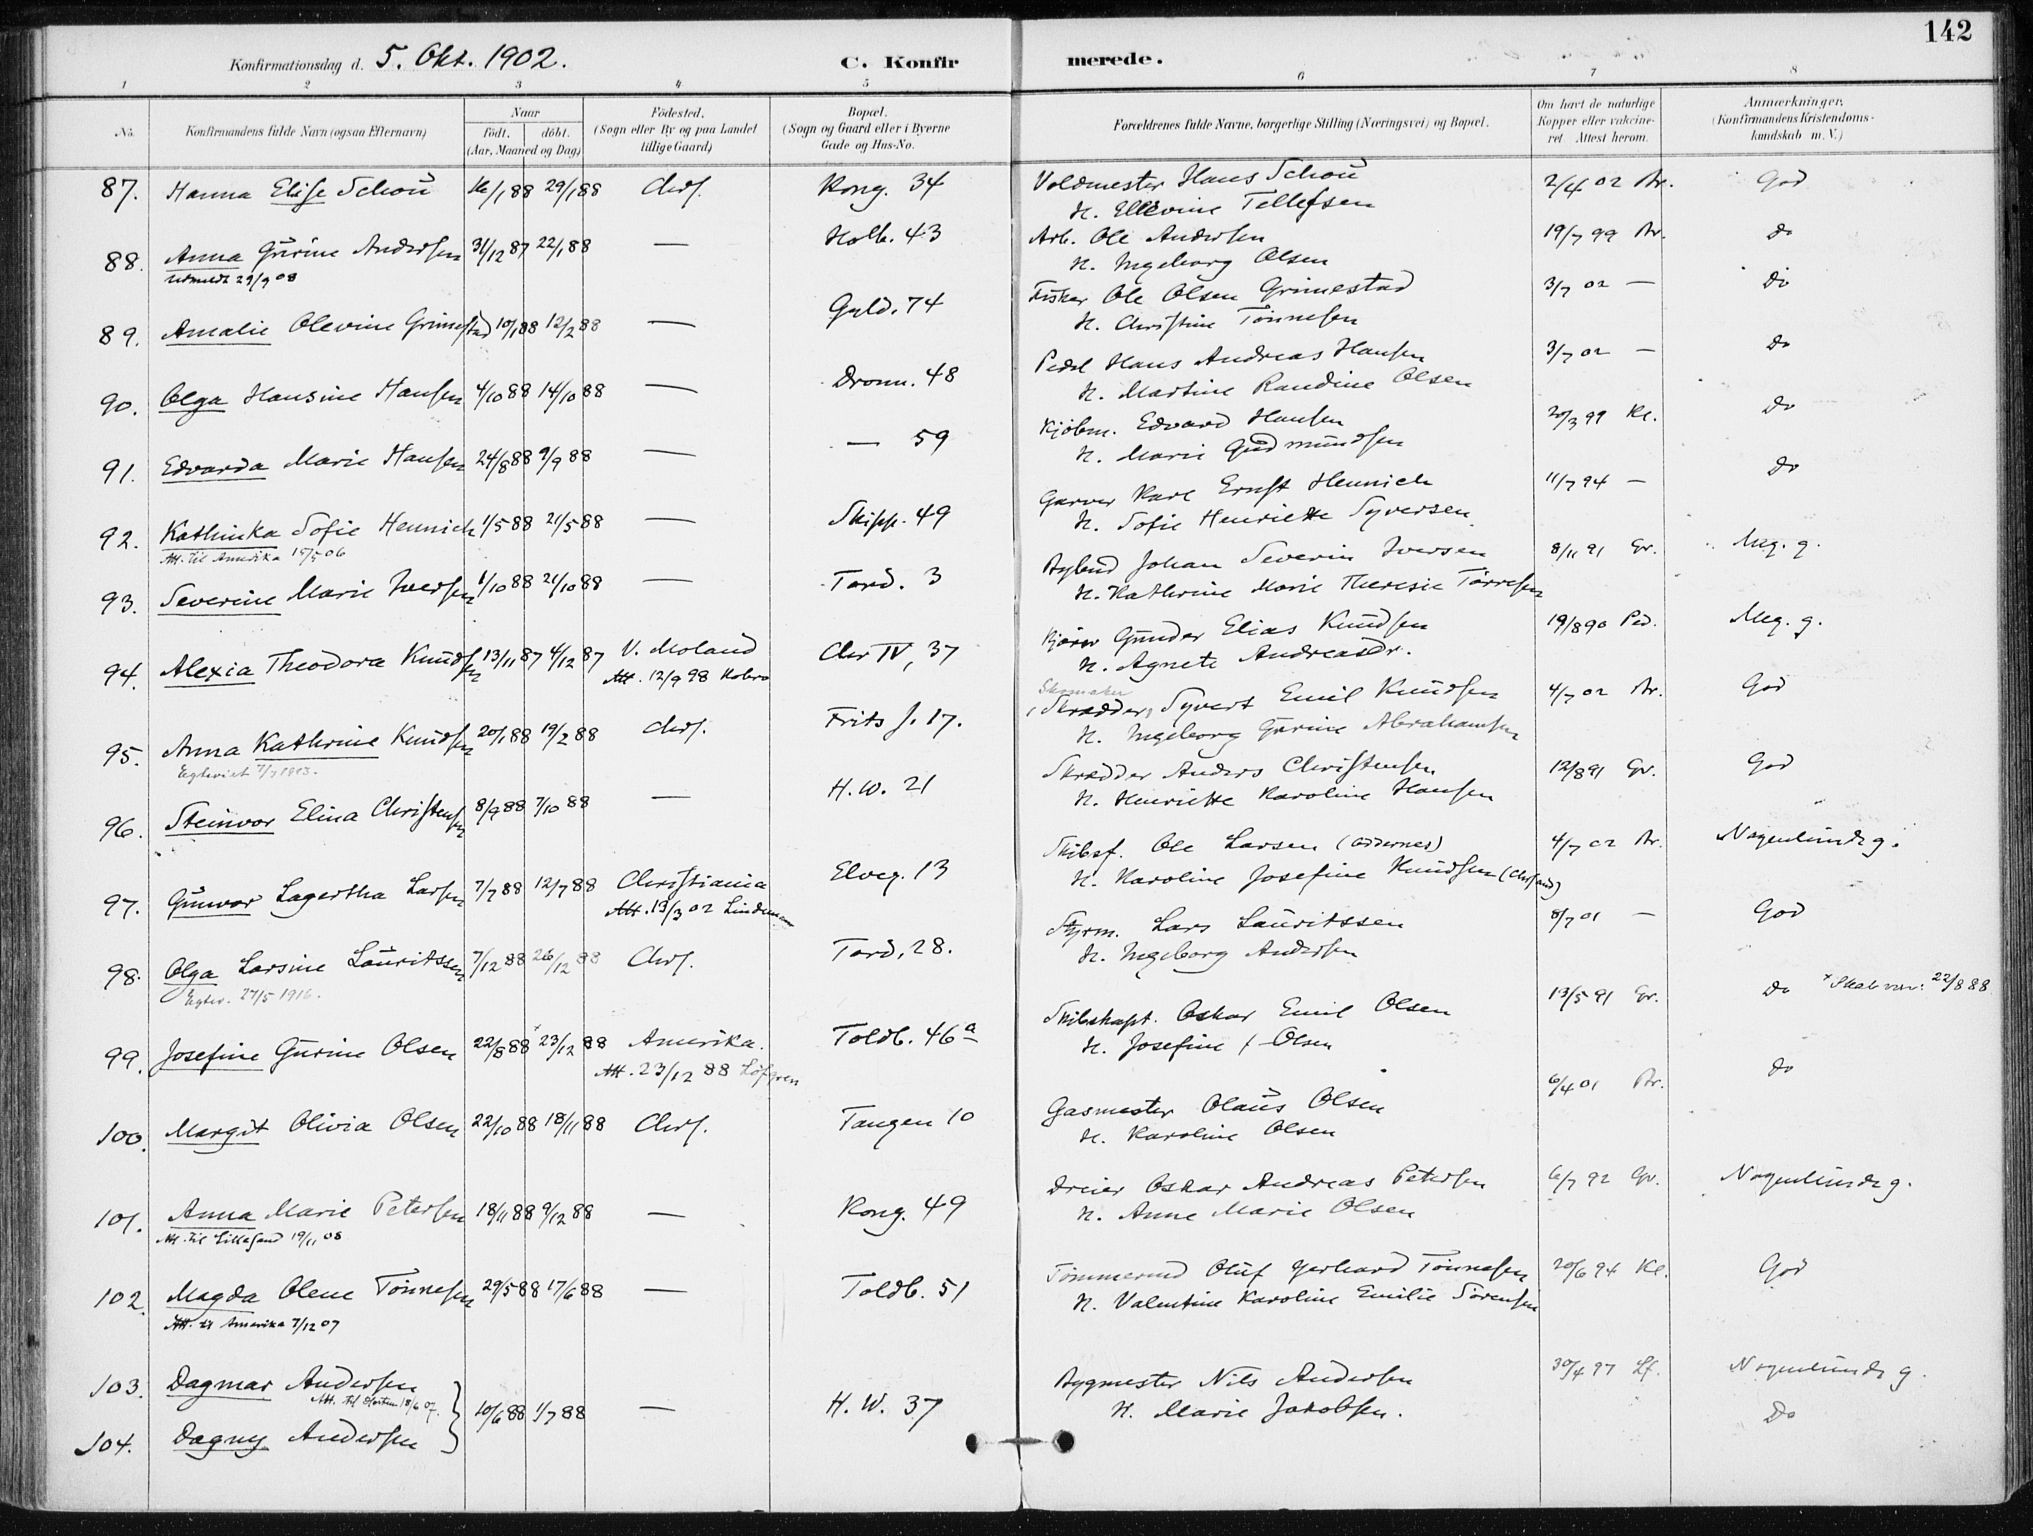 142
Konfirmationsdag d. 5. Okt. 1902.
C. Konfirmerede.
1 2 3 4 5 6 7 8
No.
Konfirmandens fulde Navn (ogsaa Efternavn)
Naar
födt. döbt.
(Aar, Maaned og Dag)
Födested.
(Sogn eller By og paa Landet
tillige Gaard)
Bopæl.
(Sogn og Gaard eller i Byerne
Gade og Hus-No.
Forældrenes fulde Navne, borgerlige Stilling (Næringsvei) og Bopæl.
Om havt de naturlige
Kopper eller vakcine-
ret. Attest herom.
Anmærkninger.
(Konfirmandens Kristendoms-
kundskab m. V.)
87. Hanna Elise Schou 16/1 88 29/1 88 Chrs. Kong. 34 Voldmester Hans Schou 2/4 02 Br. God
H. Ellevine Tellefsen
88. Anna Gurine Andersen 31/12 87 22/1 88 — Holb. 43 Arb. Ole Andersen 19/7 99 Br. Do
Udmeldt 29/9 08
H. Ingeborg Olsen
89. Amalie Olevine Grimestad 10/1 88 12/2 88 — Gyld. 74 Fisker Ole Olsen Grimestad 3/7 02 — Do
H. Christine Tönnesen
90. Olga Hansine Hansen 4/10 88 14/10 88 — Dronn. 48 Pedel Hans Andreas Hansen 3/7 02 — Do
H. Martine Randine Olsen
91. Edvarda Marie Hansen 24/8 88 9/9 88 — — 59 Kjöbm. Edvard Hansen 20/3 99 Kl. Do
H. Marie Gudmundsen
92. Kathinka Sofie Hennich 1/5 88 21/5 88 — Skipp. 49 Garver Karl Ernst Hennich 11/7 94 — Do
Att. til Amerika 15/5 06
H. Sofie Henriette Syversen
93. Severine Marie Iversen 1/10 88 21/10 88 — Tord. 3 Bybud Johan Severin Iversen 8/11 91 Gr. Meg. g.
H. Kathrine Marie Theresie Törresen
94. Alexia Theodora Knudsen 13/11 87 4/12 87 V. Moland Chr IV, 37 Gunder Elias Knudsen 19/8 90 Ped. Meg. g.
Att. 12/9 98
H. Agnete Andreasdr.
95. Anna Kathrine Knudsen 20/1 88 19/2 88 Chrs. Frits J. 17. Skomaker
(Skrædder) Syvert Emil Knudsen 4/7 02 Br. God
Egteviet 7/7 1913.
H. Ingeborg Gurine Abrahamsen
96. Steinvor Elina Christensen 8/9 88 7/10 88 — H. W. 21 Skrædder Anders Christensen 12/8 91 Gr. God
H. Henriette Karoline Hansen
97. Gunvor Lagertha Larsen 7/7 88 12/7 88 Christiania Elveg. 13 Skibsf. Ole Larsen (Oddernes) 4/7 02 Br. Nogenlunde g.
Att. 13/3 02 Lindeman
H. Karoline Josefine Knudsen (Chrsand)
98. Olga Larsine Lauritssen 7/12 88 26/12 88 Chrs. Tord, 28. Styrm. Lars Lauritssen 8/7 01 — God
Egtev. 27/5 1916.
H. Ingeborg Andersen
99. Josefine Gurine Olsen 22/8 88 x 23/12 88 Amerika. Toldb. 46a Skibskapt. Oskar Emil Olsen 13/5 91 Gr. Do x Skal være: 22/8 88
Att. 23/12 88 Löfgren
H. Josefine f. Olsen
100. Margit Olivia Olsen 22/10 88 18/11 88 Chrs. Tangen 10 Gasmester Olaus Olsen 6/4 01 Br. Do
H. Karoline Olsen
101. Anna Marie Petersen 18/11 88 9/12 88 — Kong. 49 Dreier Oskar Andreas Petersen 6/7 92 Gr. Nogenlunde g.
Att. til Lillesand 19/11 08
H. Anne Marie Olsen
102. Magda Olene Tönnesen 29/5 88 17/6 88 — Toldb. 51 Tömmermd Oluf Gerhard Tönnesen 20/6 94 Kl. God
Att. til Amerika 7/12 07
H. Valentine Karoline Emilie Sörensen
103. Dagmar Andersen 10/6 88 1/7 88 — H. W. 37 Bygmester Nils Andersen 30/4 97 Lf. Nogenlunde g.
Att. til Horten 18/6 07.
H. Marie Jakobsen.
104. Dagny Andersen Do